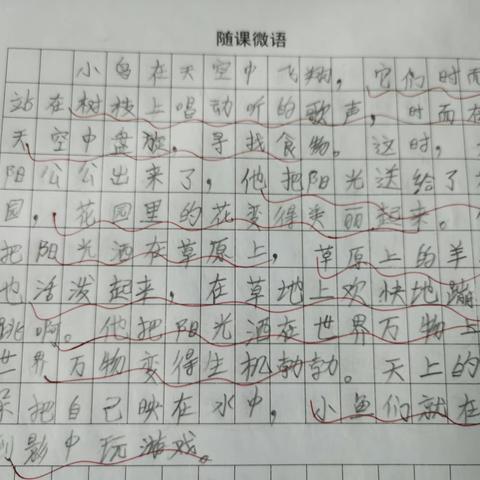 随课微语
小鸟在天空中飞翔，它们时而
站在树枝上唱动听的歌声，时而在
天空中盘旋，寻找食物。这时，
阳公公出来了，他把阳光送给了
园，花园里的花变得美丽起来。
把阳光洒在草原上，草原上的羊
也活泼起来，在草地上欢快地蹦
跳啊。他把阳光洒在世界万物上
世界万物变得生机勃勃。天上的
朵把自己映在水中，小鱼们就在
倒影中玩游戏。